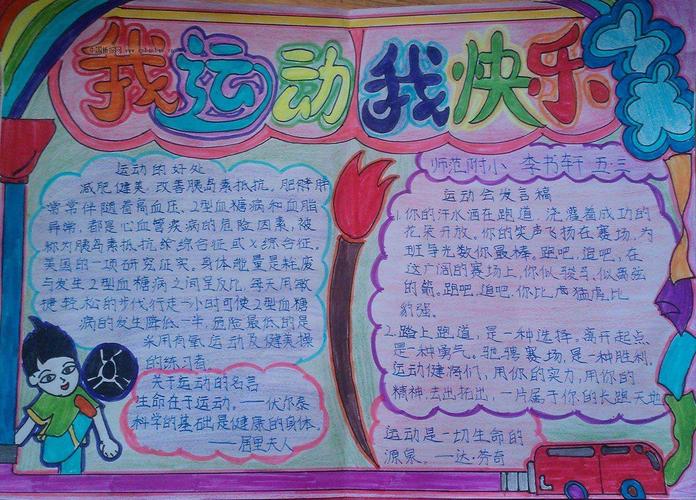 我运动我快乐
运动的好处
减肥健美.改善胰岛素抵抗。肥胖
常常伴随着高血压、2型血糖病和血脂
异常,都是心血管疾病的危险因素,被
称为胰岛素抵抗综合征或X综合征。
美国的一项研究证实。身体能量是耗废
与发生2型血糖病之间呈反比,每天用敏
捷轻松的步代行走一小时可使2型血糖
病的发生降低一半,危险最低的是
采用有氧运动及健美操
的练习者。
关于运动的名言
生命在于运动。——伏尔泰
科学的基础是健康的身体。
——居里夫人
师范附小 李书轩 五.三
运动会发言稿
1.你的汗水洒在跑道,浇灌着成功的
花朵开放。你的笑声飞扬在赛场,为
班争光数你最棒。跑吧,追吧,在
这广阔的赛场上,你似骏马,似离弦
的箭。跑吧,追吧,你比虎猛虎比
豹强。
2.踏上跑道,是一种选择。离开起点
是一种勇气。驰骋赛场,是一种胜利。
运动健将们,用你的实力,用你的
精神,去出拓出,一片属于你的长跑天地
运动是一切生命的
源泉。——达·芬奇